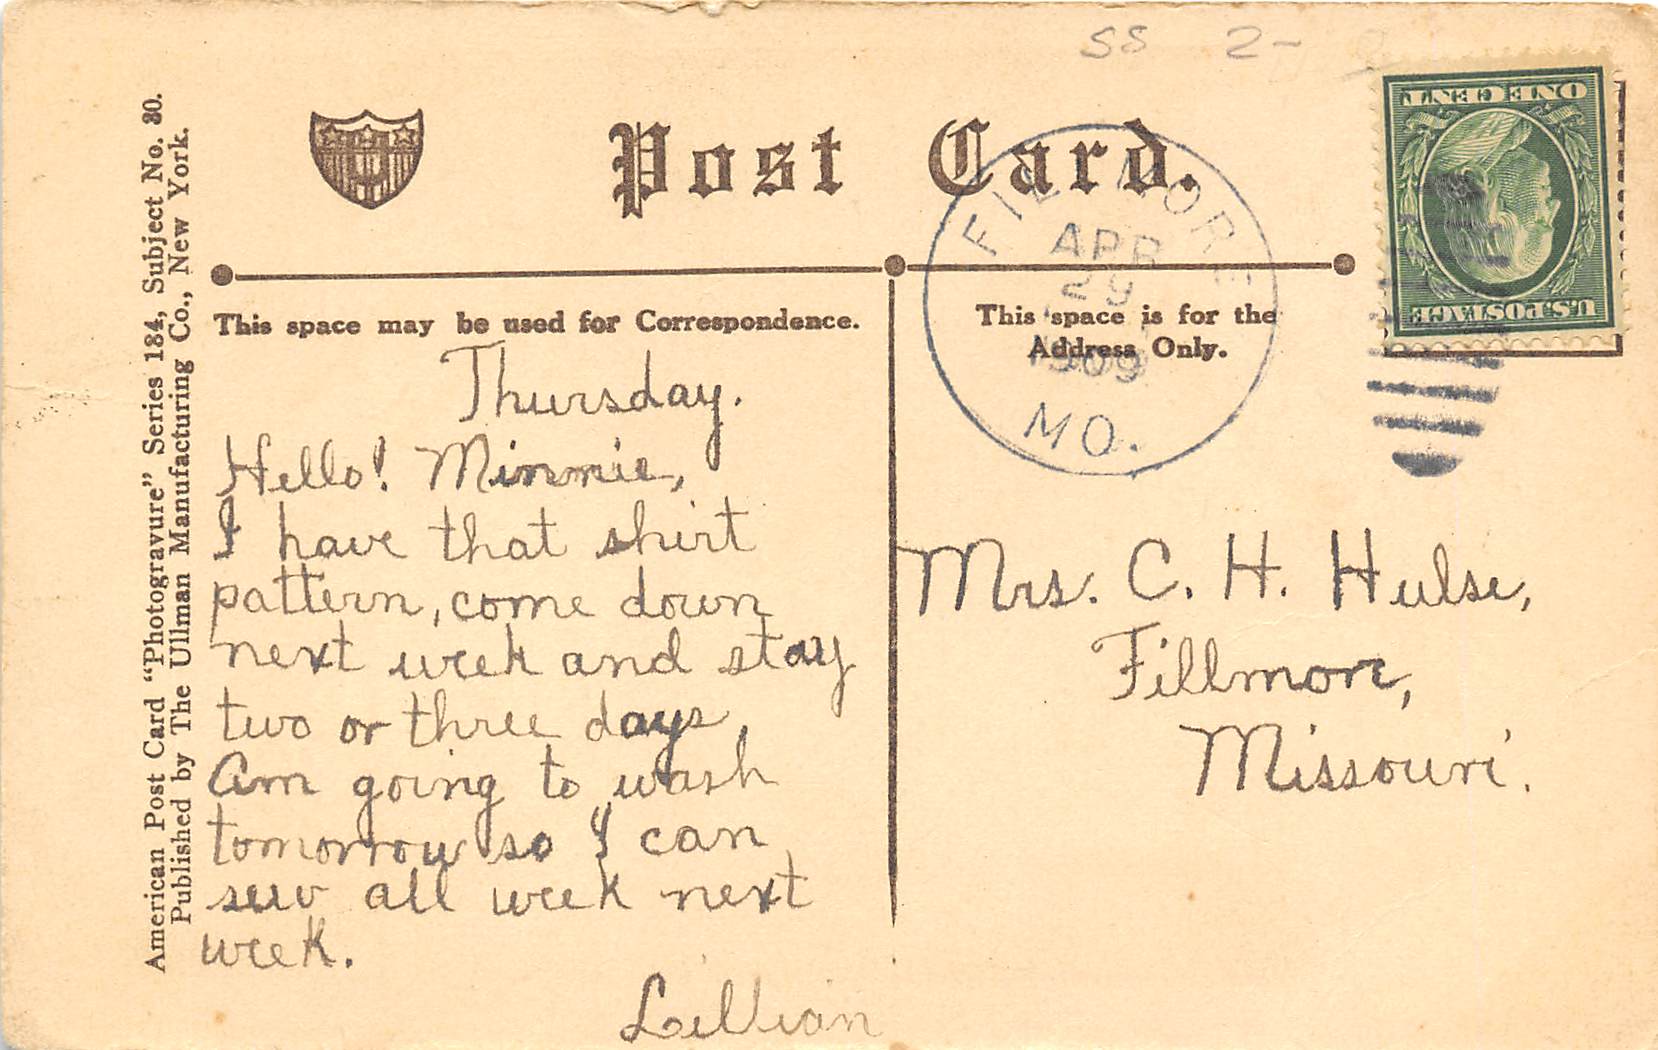 SS 2-
Post Card.
American Post Card "Photogravure" Series 184, Subject No. 30.
Published by The Ullman Manufacturing Co., New York.
FILLMORE
APR
29
1909
MO.
ONE CENT
U.S. POSTAGE
This space may be used for Correspondence.
Thursday.
Hello! Minnie,
I have that shirt
pattern, come down
next week and stay
two or three days,
Am going to wash
tomorrow so I can
sew all week next
week.
Lillian
This space is for the
Address Only.
Mrs. C. H. Hulse,
Fillmore,
Missouri.